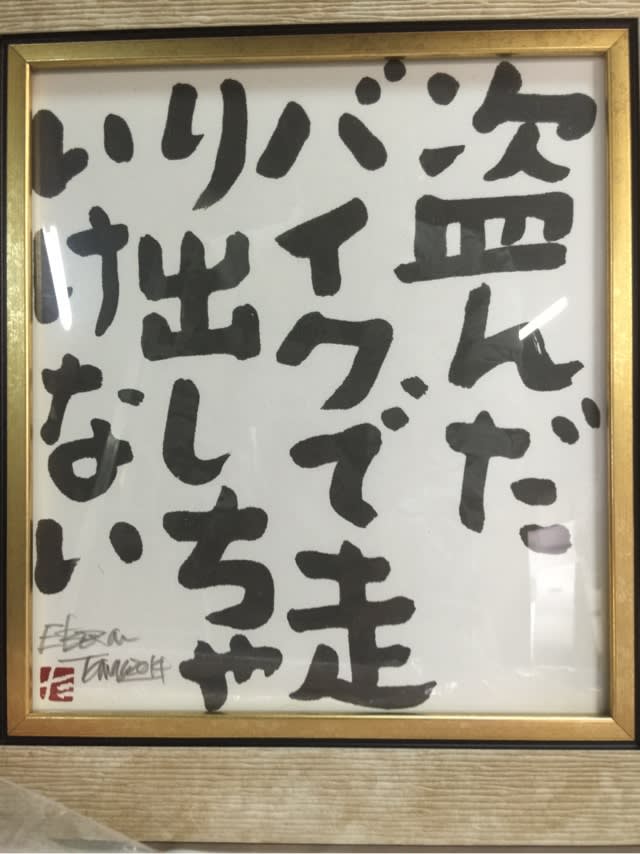 盗んだ
バイクで走
り出しちゃ
いけない